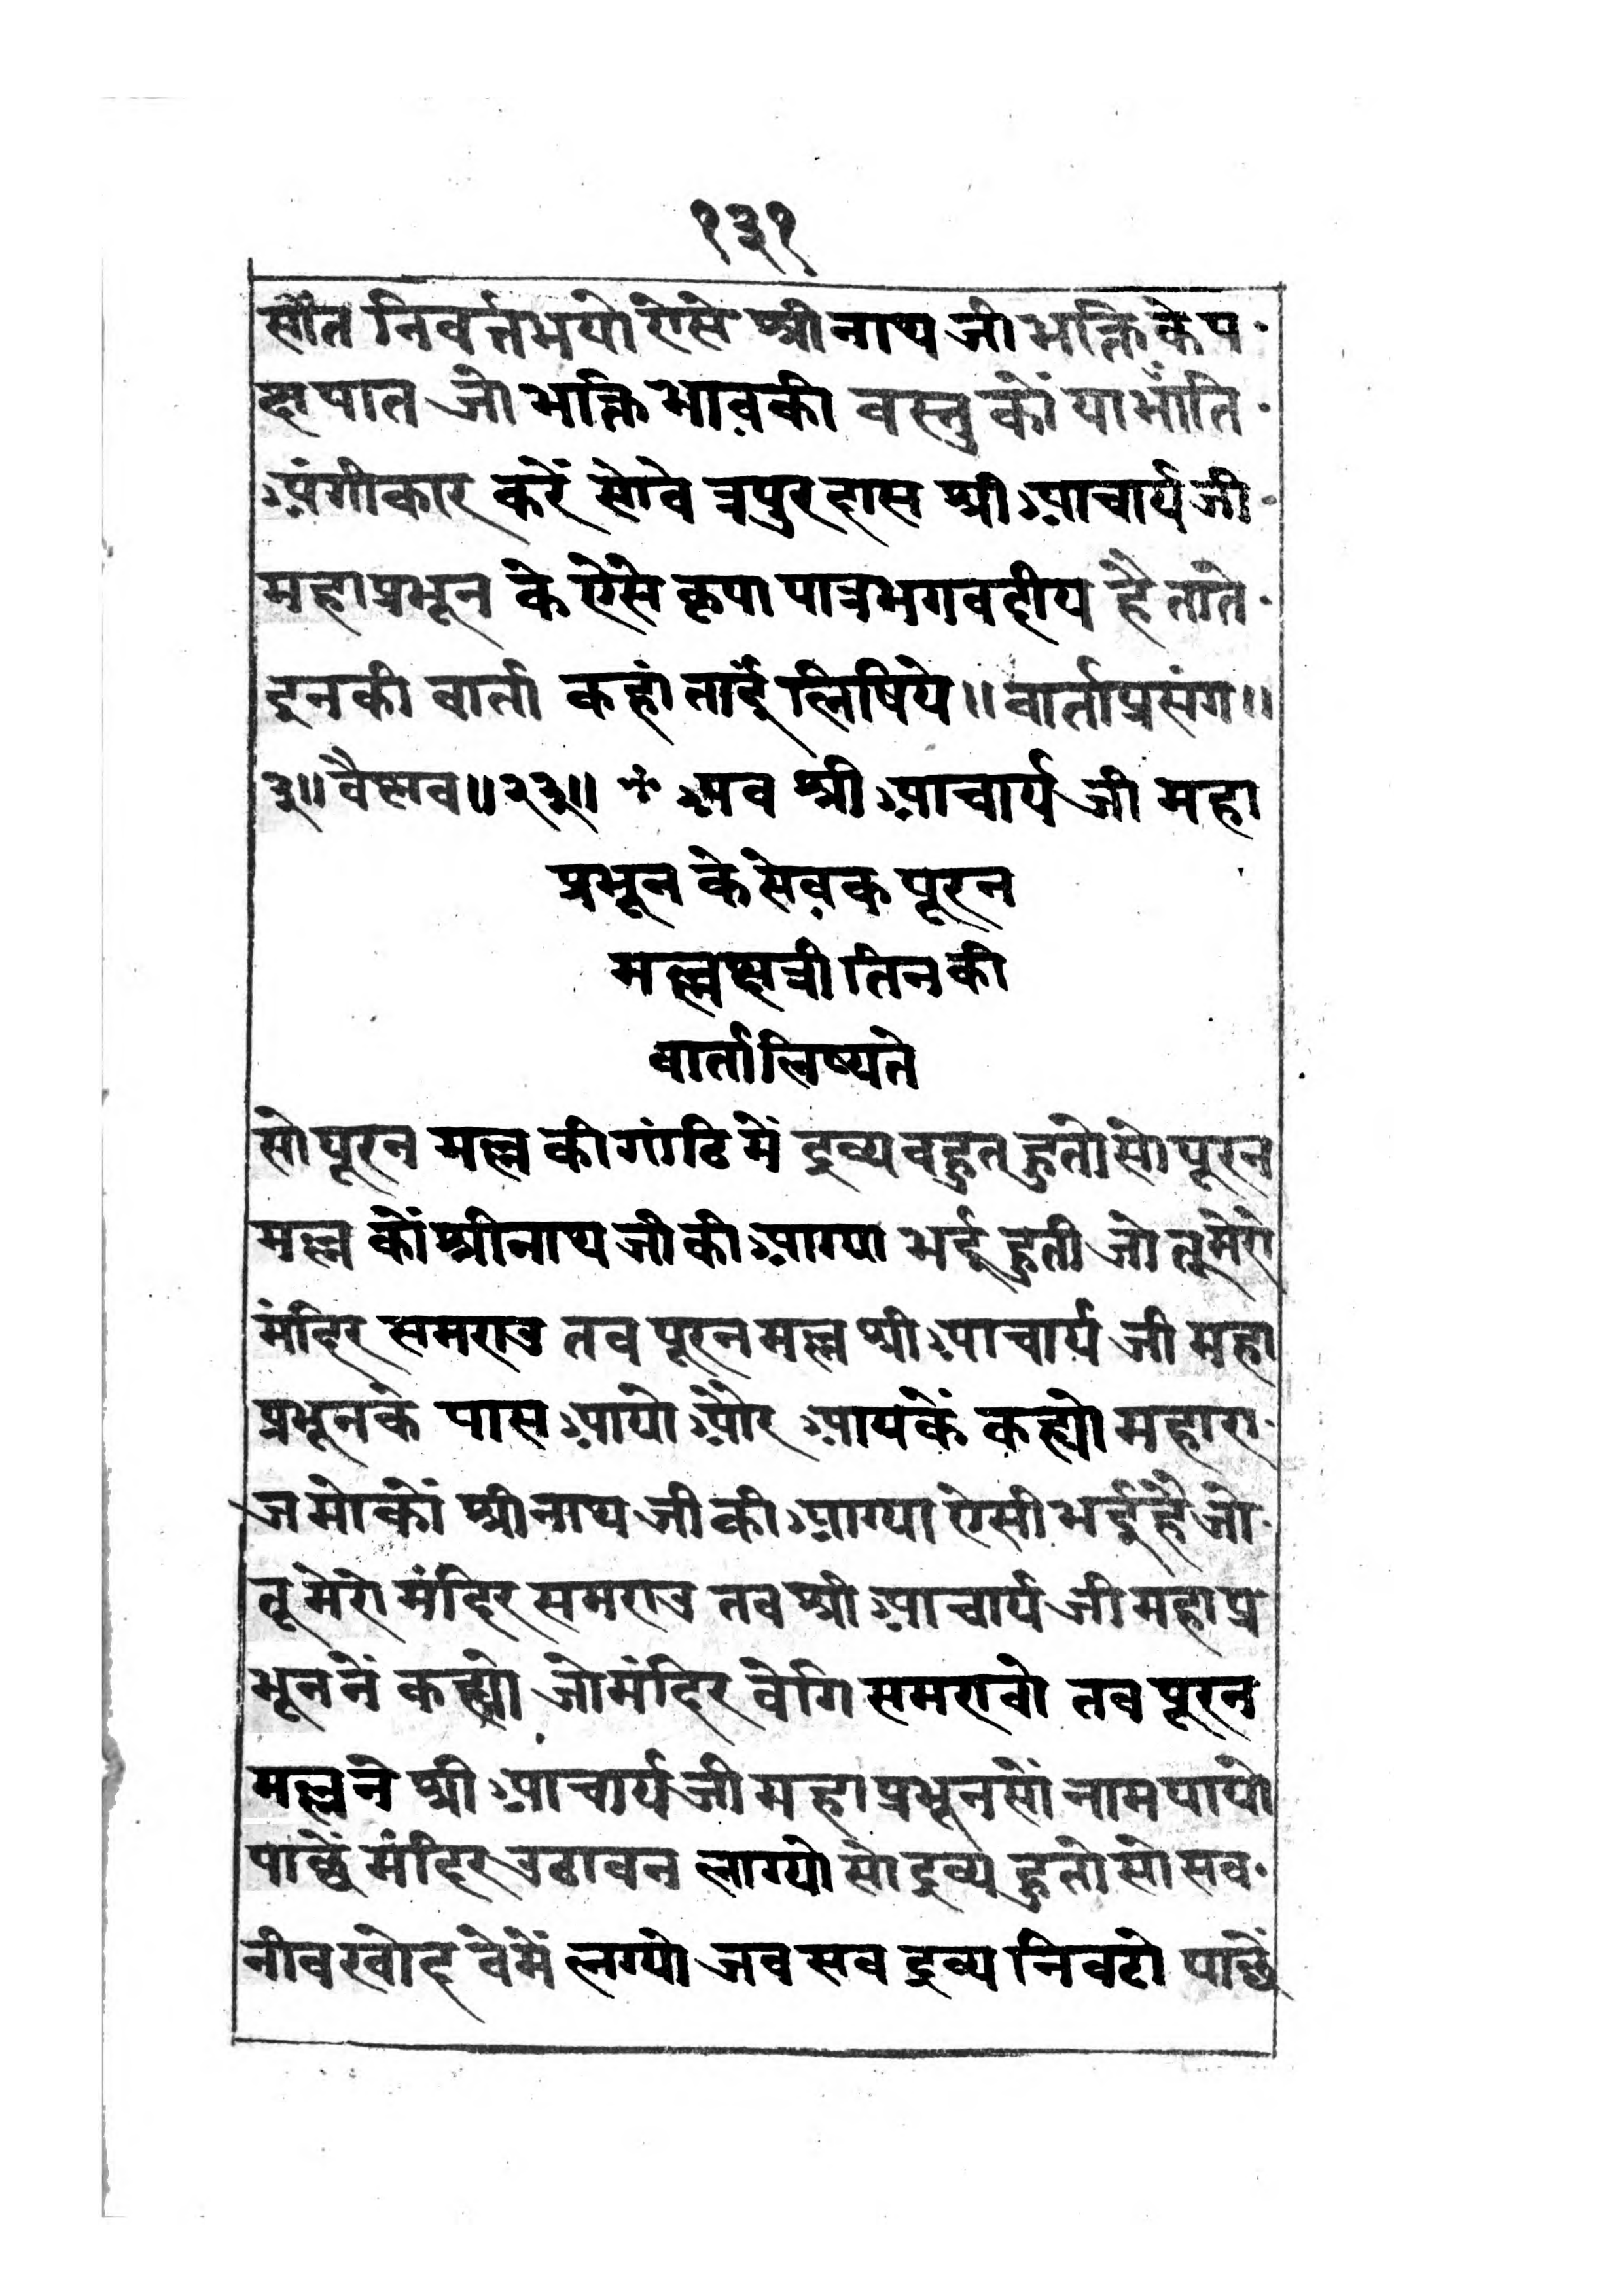 १३१
सौंत निवर्त्तभयो ऐसे श्रीनाथ जी भक्ति के प
क्षपात जो भक्ति भाव़की वस्तु कों या भाँति
अंगीकार करें सोवे त्रपुरदास श्री आचार्य जी
महाप्रभून के ऐसे कृपा पात्रभगवदीय है ताते
इनकी वार्ता कहां ताई लिषिये ॥ वार्ताप्रसंग ॥
३॥ वैष्णव ॥२३॥ * अव श्री आचार्य जी महा
प्रभून के सेव़क पूरन
मल्लक्षत्री तिनकी
वार्तालिष्यते
सो पूरन मल्ल की गांठि में द्रव्य वहुत हुतो सो पूरन
मल्ल कों श्रीनाथ जी की आग्या भई हुती जो तू मेरो
मंदिर समराउ तव पूरनमल्ल श्री आचार्य जी महा
प्रभूनके पास आयो और आयकें कह्यो महारा
ज मोकों श्रीनाथ जी की आग्या ऐसी भई है जो
तू मेरो मंदिर समराउ तव श्री आचार्य जी महाप्र
भूननें कह्यो जोमंदिर वेगि समरावो तव पूरन
मल्लने श्री आचार्य जी महाप्रभूनसों नाम पायो
पाछें मंदिर उठावन लाग्यो सो द्रव्य हुतो सो सव
नीव खोदवेमें लग्यो जव सव द्रव्य निवटो पाछें